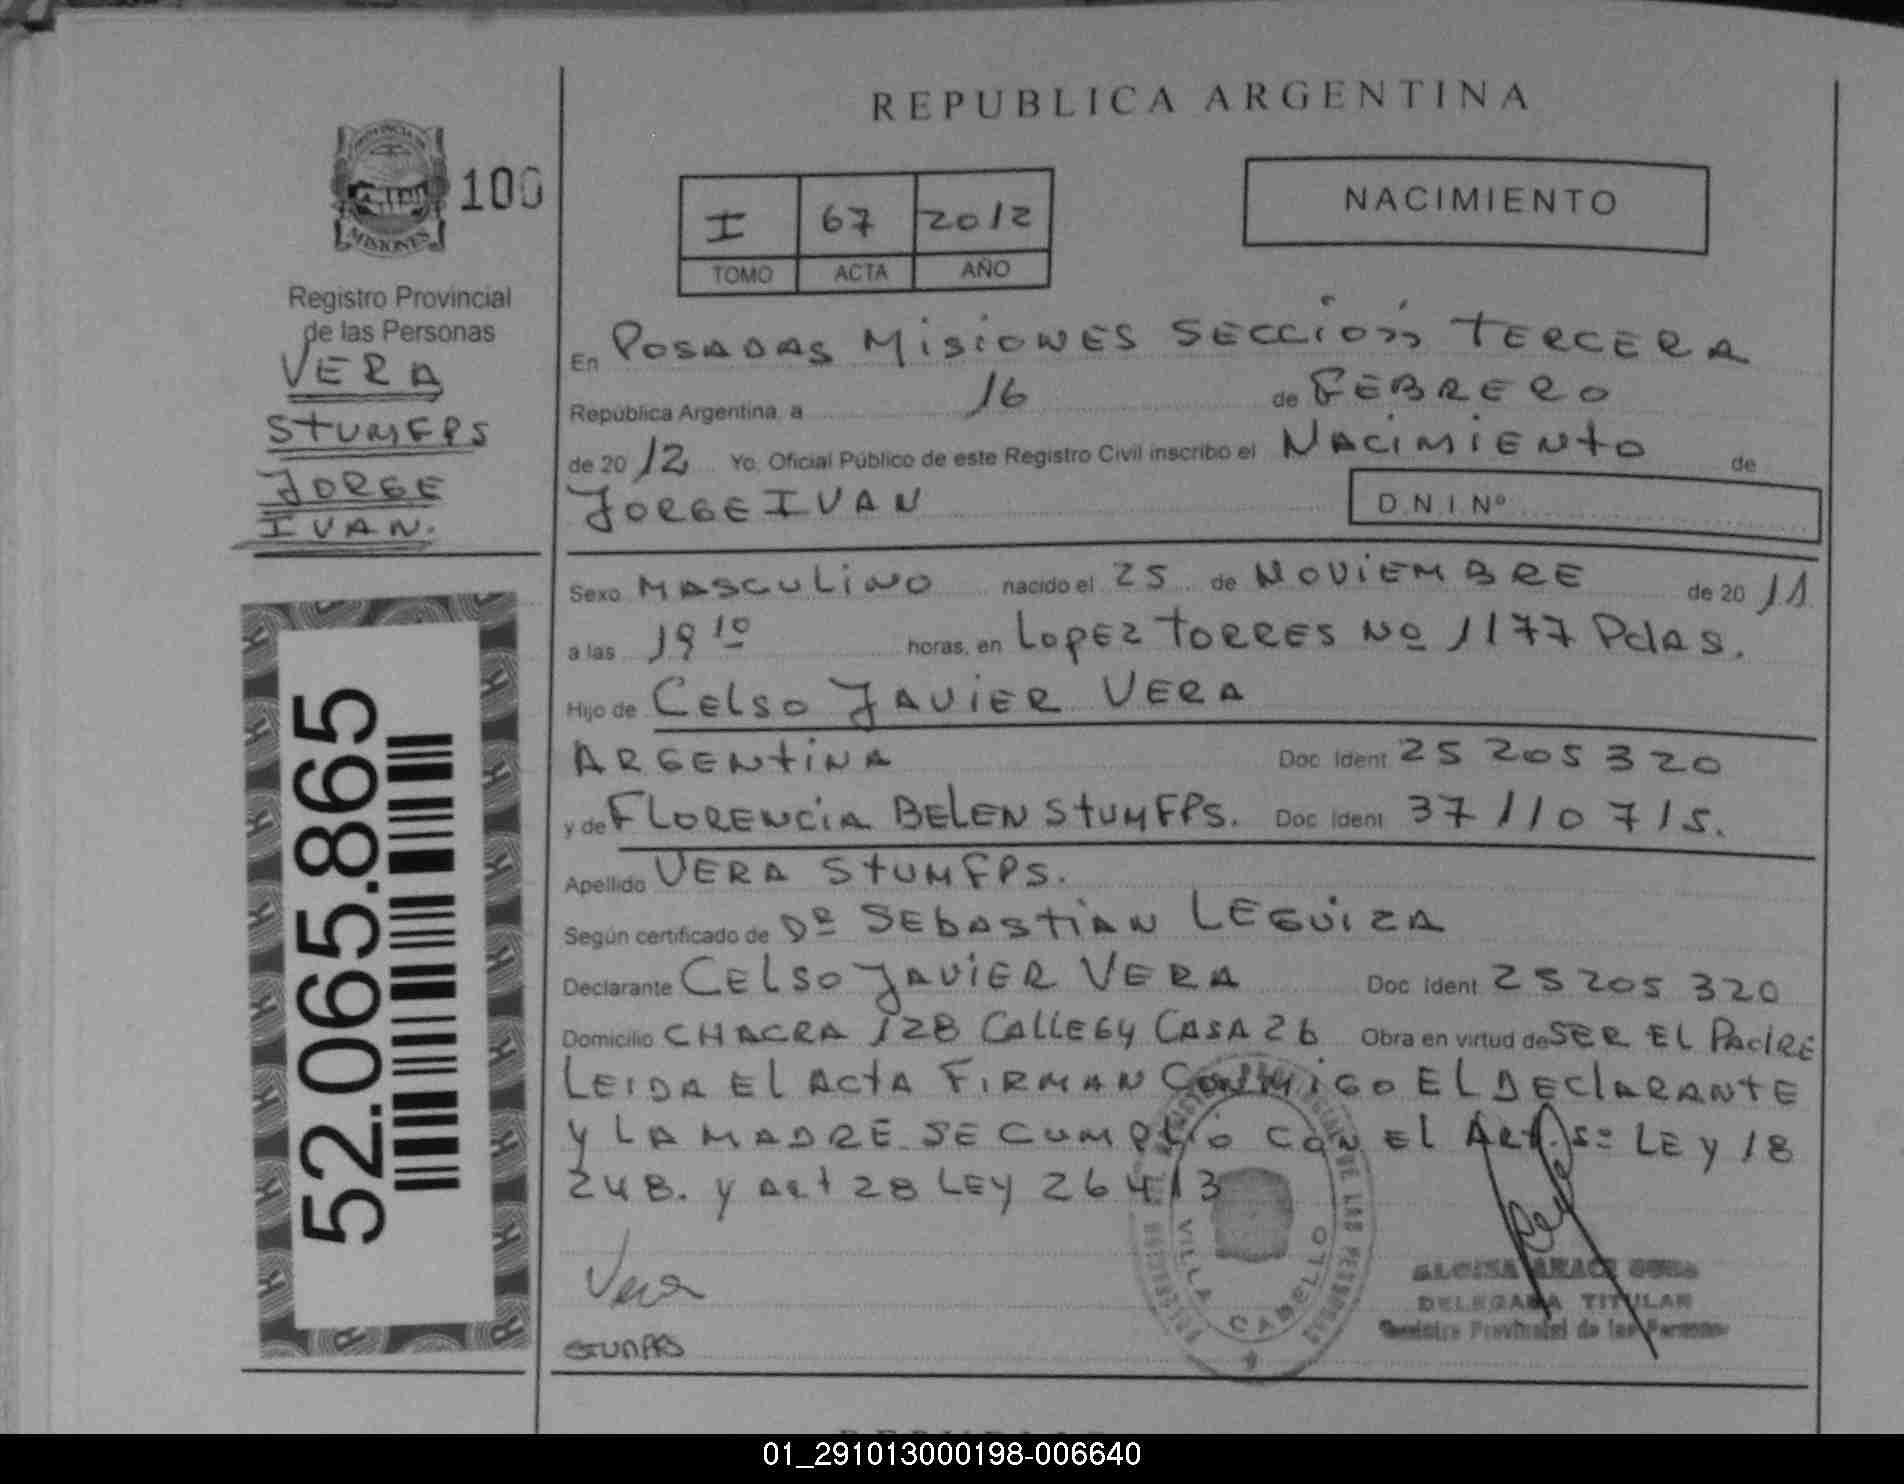 REPUBLICA ARGENTINA
PROVINCIA DE
MISIONES
100
Registro Provincial
de las Personas
VERA
STUMFPS
JORGE
IVAN.
I 67 2012
TOMO ACTA AÑO
NACIMIENTO
En POSADAS MISIONES SECCIÓN TERCERA
República Argentina, a 16 de FEBRERO
de 2012 Yo, Oficial Público de este Registro Civil inscribo el NACIMIENTO de
JORGE IVAN
D N I Nº
Sexo MASCULINO nacido el 25 de NOVIEMBRE de 2011
a las 19 10 horas, en LOPEZ TORRES Nº 1177 Pdas.
Hijo de CELSO JAVIER VERA
ARGENTINA Doc Ident 25 205 320
y de FLORENCIA BELEN STUMFPS. Doc Ident 37 110 715.
Apellido VERA STUMFPS.
Según certificado de DR SEBASTIAN LEGUIZA
Declarante CELSO JAVIER VERA Doc Ident 25 205 320
Domicilio CHACRA 128 CALLE 64 CASA 26 Obra en virtud de SER EL PADRE
LEIDA EL ACTA FIRMAN CONMIGO EL DECLARANTE
Y LA MADRE SE CUMPLIO CON EL ART. 5º LEY 18
248. Y ART 28 LEY 26413
Vera
STUMFPS
VILLA CABELLO
DE LAS PERSONAS
DELEGADA TITULAR
Registro Provincial de las Personas
52.065.865
01_291013000198-006640